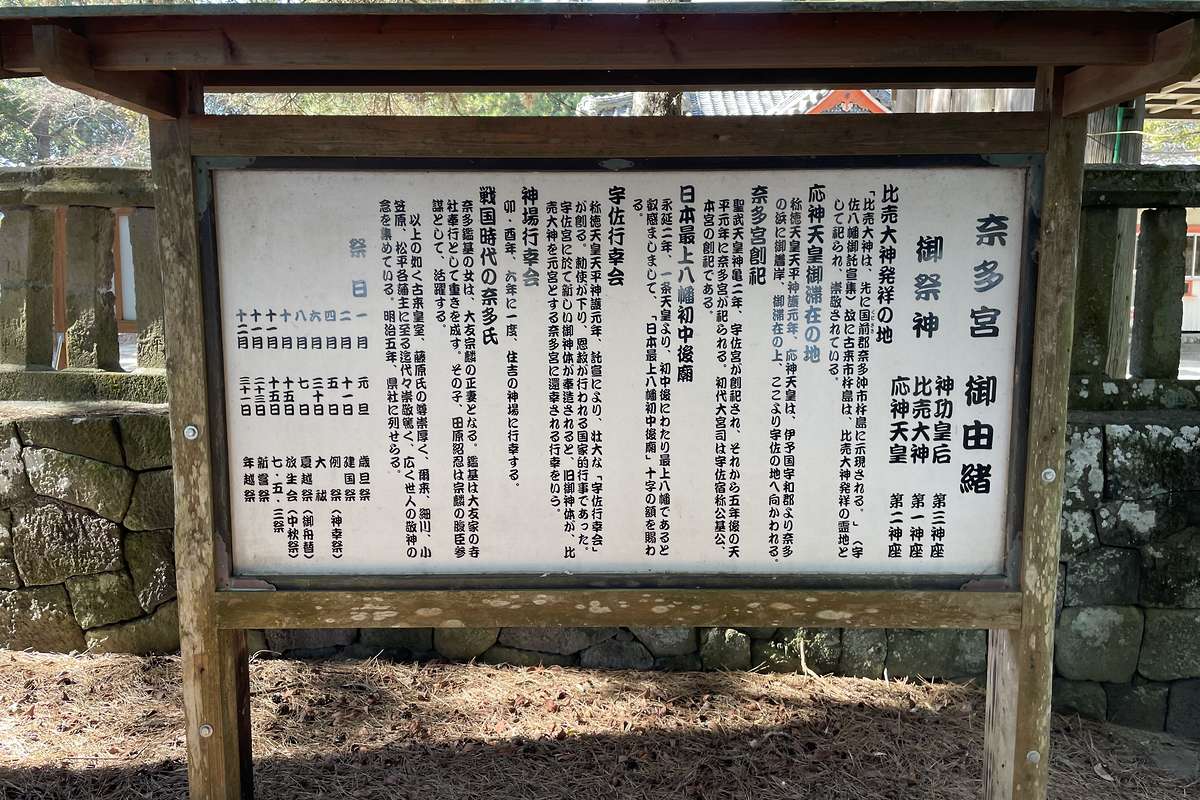 奈多宮 御由緒
御祭神
神功皇后 第三神座
比売大神 第一神座
応神天皇 第二神座
比売大神発祥の地
「比売大神は、先に国前郡奈多沖市杵島に示現される。」(宇
佐八幡御託宣集)故に古来市杵島は、比売大神発祥の霊地と
して祀られ、崇敬されている。
応神天皇御滞在の地
称徳天皇天平神護元年、応神天皇は、伊予国宇和郡より奈多
の浜に御着岸、御滞在の上、ここより宇佐の地へ向かわれる。
奈多宮創祀
聖武天皇神亀二年、宇佐宮が創祀され、それから五年後の天
平元年に奈多宮が祀られる。初代大宮司は宇佐宿称公基公、
本宮の創祀である。
日本最上八幡初中後廟
永延二年、一条天皇より、初中後にわたり最上八幡であると
叡感ましまして、「日本最上八幡初中後廟」十字の額を賜わ
る。
宇佐行幸会
称徳天皇天平神護元年、託宣により、壮大な「宇佐行幸会」
が創る。勅使が下り、恩赦が行われる国家的行事であった。
宇佐宮に於て新しい御神体が奉造されると、旧御神体が、比
売大神を元宮とする奈多宮に還幸される行幸をいう。
神場行幸会
卯・酉年、六年に一度、住吉の神場に行幸する。
戦国時代の奈多氏
奈多鑑基の女は、大友宗麟の正妻となる。鑑基は大友家の寺
社奉行として重きを成す。その子、田原紹忍は宗麟の腹臣参
謀として、活躍する。
以上の如く古来皇室、藤原氏の尊崇厚く、爾来、細川、小
笠原、松平各藩主に至る迄代々崇敬篤く、広く世人の敬神の
念を集めている。明治五年、県社に列せらる。
祭日
一月 元旦 歳旦祭
二月 十一日 建国祭
四月 五日 例祭(神幸祭)
六月 三十日 大祓
八月 七日 夏越祭(御舟替)
十月 十五日 放生会(中秋祭)
十一月 十五日 七、五、三祭
十一月 二十三日 新嘗祭
十二月 三十一日 年越祭